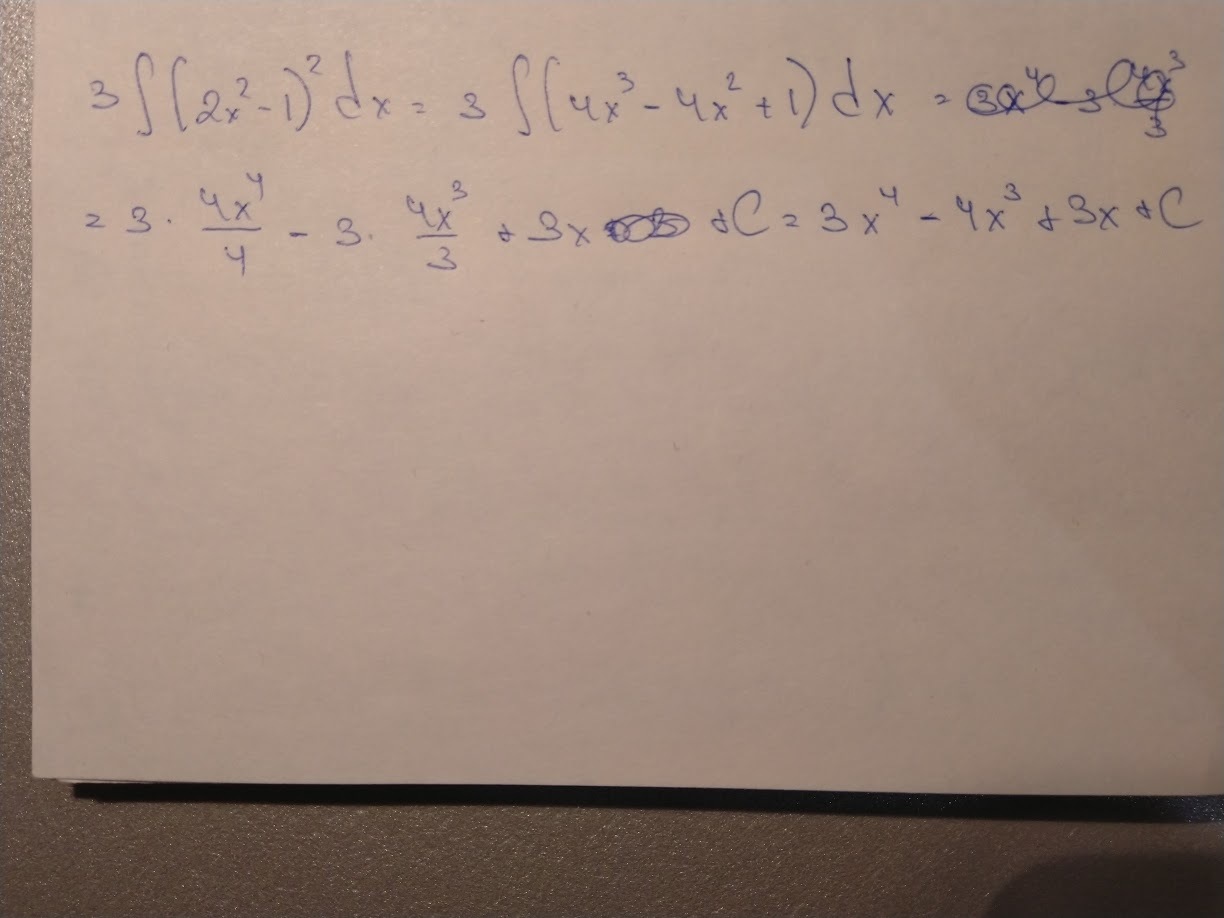 3 ∫(2x² - 1)² dx = 3 ∫(4x³ - 4x² + 1) dx =
= 3 · 4x⁴/4 - 3 · 4x³/3 + 3x + C = 3x⁴ - 4x³ + 3x + C